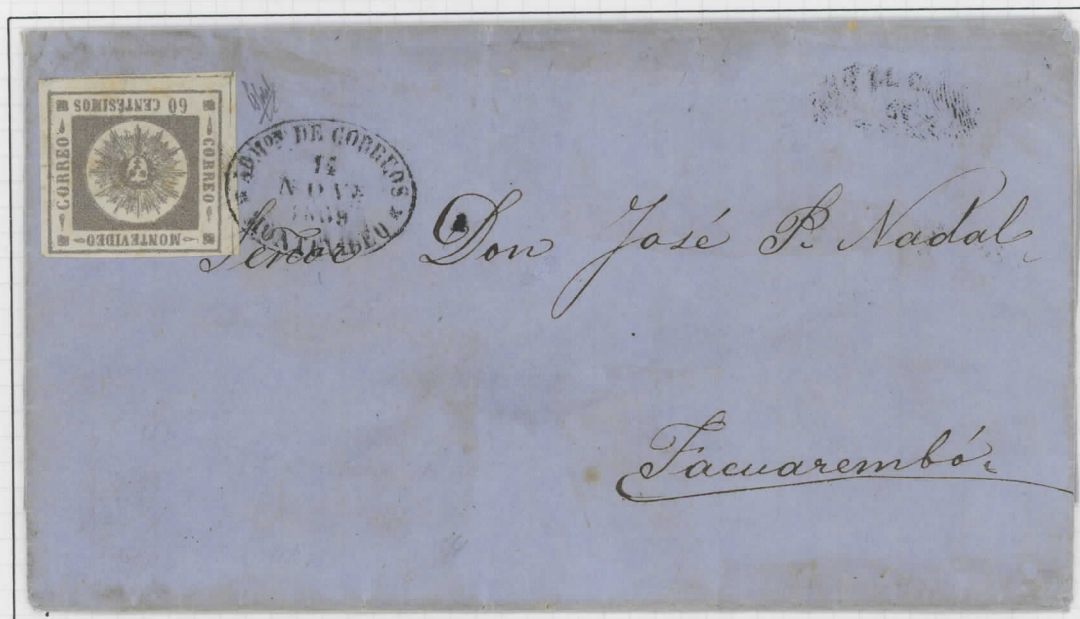 60 CENTÉSIMOS
CORREO
CORREO
MONTEVIDEO
ADMON DE CORREOS
14
NOVE
1859
MONTEVIDEO
Señor Don José P. Nadal
Tacuarembó